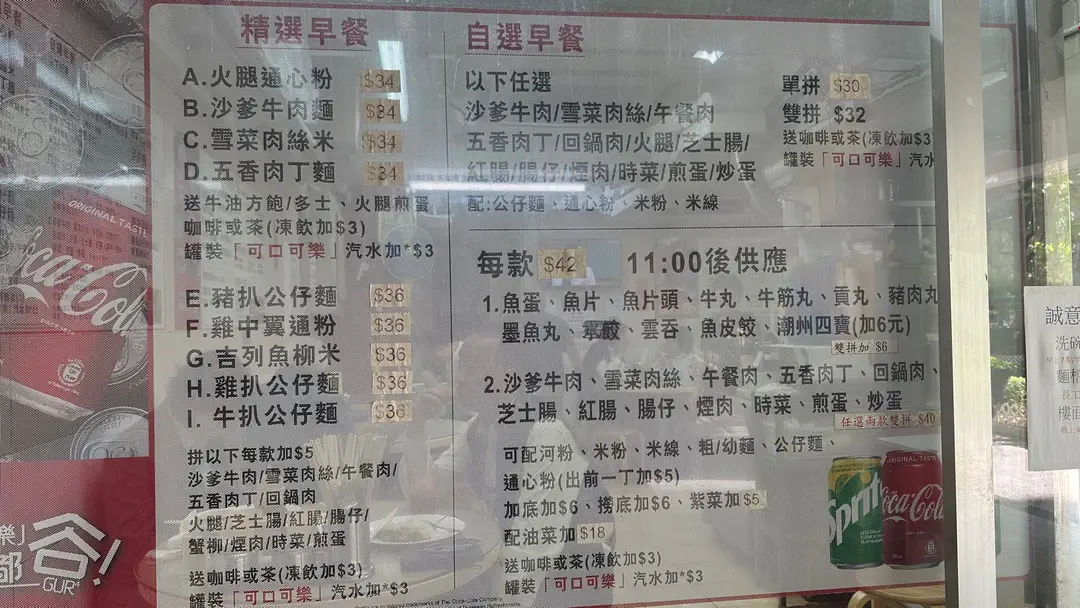 精選早餐
A.火腿通心粉 $34
B.沙爹牛肉麵 $34
C.雪菜肉絲米 $34
D.五香肉丁麵 $34
送牛油方飽/多士、火腿煎蛋
咖啡或茶(凍飲加$3)
罐裝「可口可樂」汽水加*$3
E.豬扒公仔麵 $36
F.雞中翼通粉 $36
G.吉列魚柳米 $36
H.雞扒公仔麵 $36
I.牛扒公仔麵 $36
拼以下每款加$5
沙爹牛肉/雪菜肉絲/午餐肉/
五香肉丁/回鍋肉
火腿/芝士腸/紅腸/腸仔/
蟹柳/煙肉/時菜/煎蛋
送咖啡或茶(凍飲加$3)
罐裝「可口可樂」汽水加*$3
自選早餐
以下任選
沙爹牛肉/雪菜肉絲/午餐肉
五香肉丁/回鍋肉/火腿/芝士腸/
紅腸/腸仔/煙肉/時菜/煎蛋/炒蛋
配:公仔麵、通心粉、米粉、米線
單拼 $30
雙拼 $32
送咖啡或茶(凍飲加$3
罐裝「可口可樂」汽水
每款 $42 11:00後供應
1.魚蛋、魚片、魚片頭、牛丸、牛筋丸、貢丸、豬肉丸
墨魚丸、雲吞、魚皮餃、潮州四寶(加6元)
雙拼加 $6
2.沙爹牛肉、雪菜肉絲、午餐肉、五香肉丁、回鍋肉、
芝士腸、紅腸、腸仔、煙肉、時菜、煎蛋、炒蛋
任選兩款雙拼 $40
可配河粉、米粉、米線、粗/幼麵、公仔麵、
通心粉(出前一丁加$5)
加底加$6、撈底加$6、紫菜加$5
配油菜加$18
送咖啡或茶(凍飲加$3)
罐裝「可口可樂」汽水加*$3
ORIGINAL TASTE
Coca-Cola
Sprite
ORIGINAL TASTE
Coca-Cola
谷!
GUR
誠意
洗碗
樓面